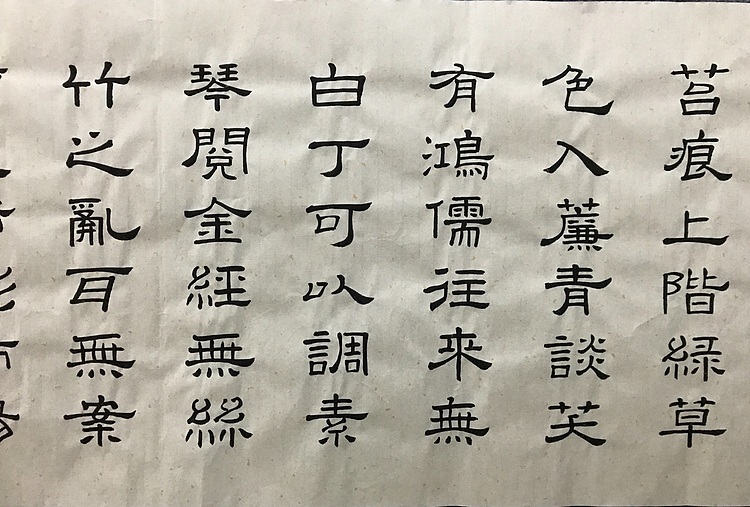 苔痕上階緑草
色入薕青談芖
有鴻儒往來無
白丁可以調素
琴閱金經無絲
竹之亂耳無案